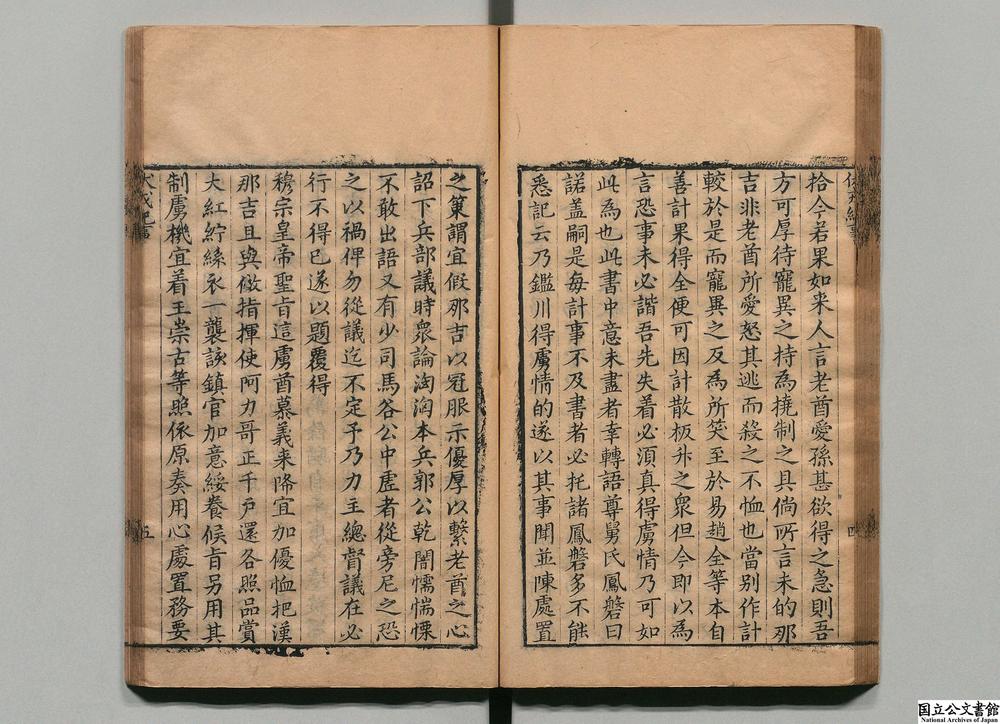 拾今若果如来人言老酋愛孫甚欲得之急則吾
方可厚待寵異之持為撓制之具倘所言未的那
吉非老酋所愛怒其逃而殺之不恤也當别作計
較於是而寵異之反為所笑至於易趙全等本自
善計果得全便可因計散板升之衆但今即以為
言恐事未必諧吾先失着必湏真得虜情乃可如
此為也此書中意未盡者幸轉語尊舅氏鳳磐曰
諾盖嗣是每計事不及書者必托諸鳳磐多不能
悉記云乃鑑川得虜情的遂以其事聞並陳處置
之策謂宜假那吉以冠服示優厚以繫老酋之心
詔下兵部議時衆論洶洶本兵郭公乾闇懦惴慄
不敢出語又有少司馬谷公中虚者從旁尼之恐
之以禍俾勿從議迄不定予乃力主總督議在必
行不得已遂以題覆得
穆宗皇帝聖㫖這虜酋慕義来降宜加優恤把漢
那吉且與做指揮使阿力哥正千戸還各照品賞
大紅紵絲衣一襲該鎮官加意綏養候㫖另用其
制虜機宜着王崇古等照依原奏用心處置務要
伏戎紀事
五
四
国立公文書館
National Archives of Japan